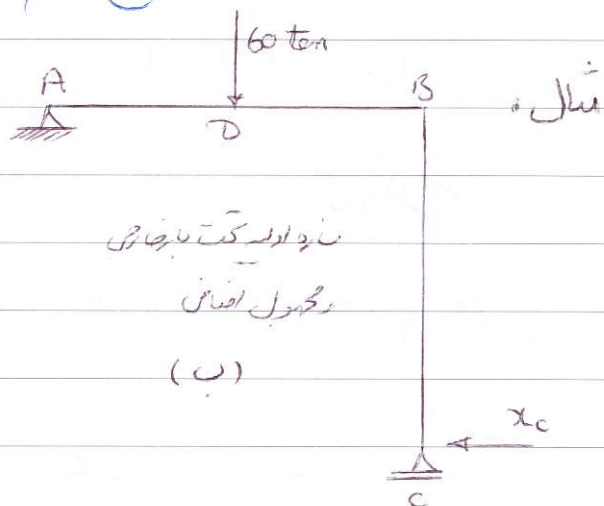 60 ton
A
B
مثال:
D
سازه اولیه تحت بار خارجی
و مجهول اضافی
(ب)
xc
C